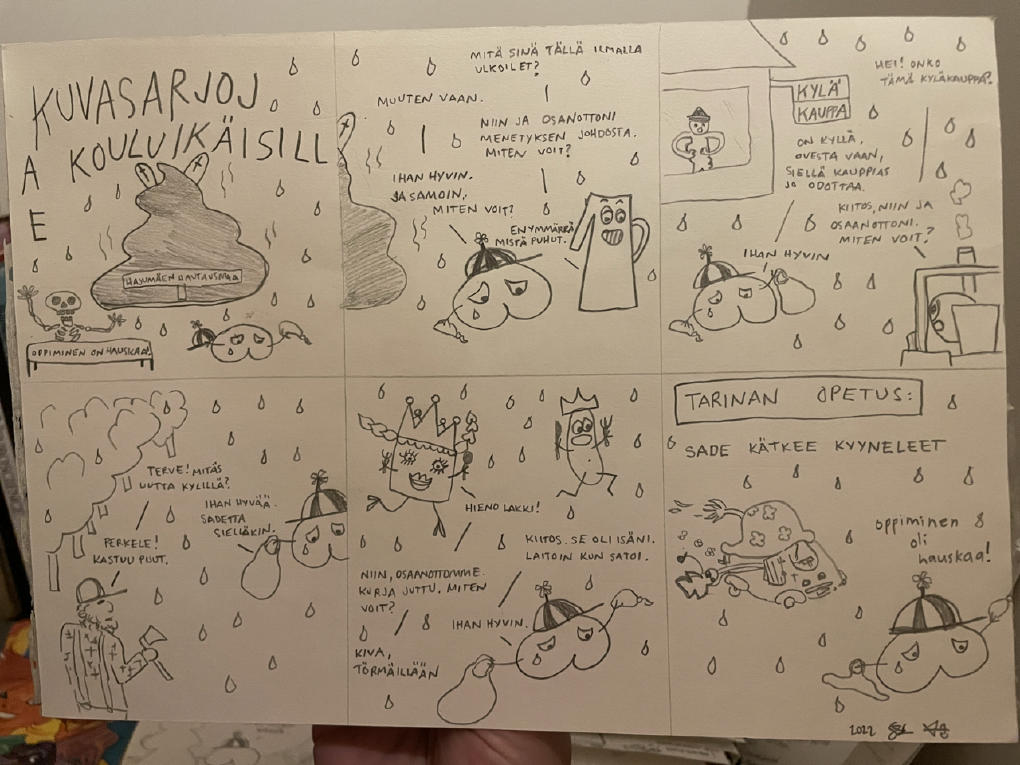 KUVASARJOJ
A KOULUIKÄISILL
E
HAJUMÄEN HAUTAUSMAA
OPPIMINEN ON HAUSKAA!
MITÄ SINÄ TÄLLÄ ILMALLA
ULKOILET?
MUUTEN VAAN.
NIIN JA OSANOTTONI
MENETYKSEN JOHDOSTA.
MITEN VOIT?
IHAN HYVIN.
JA SAMOIN,
MITEN VOIT?
EN YMMÄRRÄ
MISTÄ PUHUT.
HEI! ONKO
TÄMÄ KYLÄKAUPPA?
KYLÄ
KAUPPA
ON KYLLÄ,
OVESTA VAAN,
SIELLÄ KAUPPIAS
JO ODOTTAA.
KIITOS, NIIN JA
OSANOTTONI.
MITEN VOIT?
IHAN HYVIN
TERVE! MITÄS
UUTTA KYLILLÄ?
IHAN HYVÄÄ
SADETTA
SIELLÄKIN.
PERKELE!
KASTUU PUUT.
HIENO LAKKI!
KIITOS. SE OLI ISÄNI.
LAITOIN KUN SATOI.
NIIN, OSANOTTOMME.
KURJA JUTTU. MITEN
VOIT?
IHAN HYVIN.
KIVA,
TÖRMÄILLÄÄN
TARINAN OPETUS:
SADE KÄTKEE KYYNELEET
oppiminen
oli
hauskaa!
2022